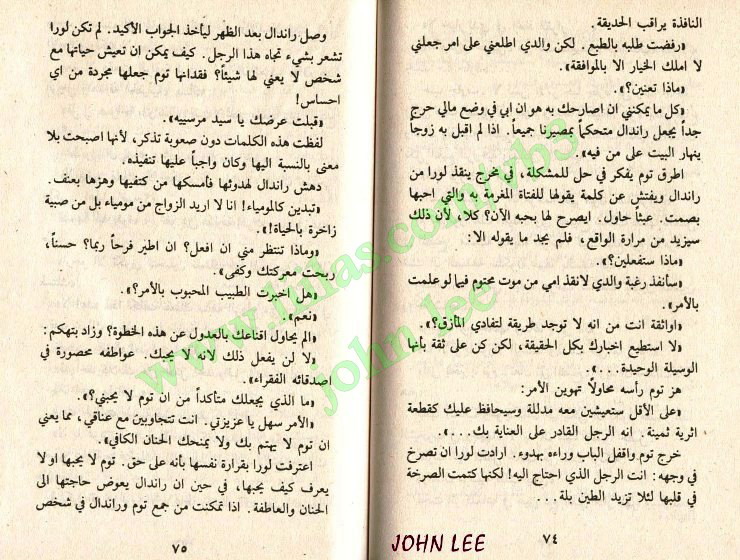 النافذة يراقب الحديقة.
«رفضت طلبه بالطبع. لكن والدي اطلعني على امر جعلني
لا املك الخيار الا بالموافقة».
«ماذا تعنين؟».
«كل ما يمكنني ان اصارحك به هو ان ابي في وضع مالي حرج
جداً يجعل راندال متحكماً بمصيرنا جميعاً. اذا لم اقبل به زوجاً
ينهار البيت على من فيه».
اطرق توم يفكر في حل للمشكلة، في مخرج ينقذ لورا من
راندال ويفتش عن كلمة يقولها للفتاة المغرمة به والتي احبها
بصمت. عبثاً حاول. ايصرح لها بحبه الآن؟ كلا، لأن ذلك
سيزيد من مرارة الواقع، فلم يجد ما يقوله الا:
«ماذا ستفعلين؟».
«سأنفذ رغبة والدي لانقذ امي من موت محتوم فيما لو علمت
بالأمر».
«اواثقة انت من انه لا توجد طريقة لتفادي المأزق؟».
«لا استطيع اخبارك بكل الحقيقة، لكن كن على ثقة بأنها
الوسيلة الوحيدة...».
هز توم رأسه محاولاً تهوين الأمر:
«على الأقل ستعيشين معه مدللة وسيحافظ عليك كقطعة
اثرية ثمينة. انه الرجل القادر على العناية بك...».
خرج توم واقفل الباب وراءه بهدوء. ارادت لورا ان تصرخ
في وجهه: انت الرجل الذي احتاج اليه! لكنها كتمت الصرخة
في قلبها لئلا تزيد الطين بلة...
٧٤
JOHN LEE
وصل راندال بعد الظهر ليأخذ الجواب الأكيد. لم تكن لورا
تشعر بشيء تجاه هذا الرجل. كيف يمكن ان تعيش حياتها مع
شخص لا يعني لها شيئاً؟ فقدانها توم جعلها مجردة من اي
احساس!
«قبلت عرضك يا سيد مرسييه».
لفظت هذه الكلمات دون صعوبة تذكر، لأنها اصبحت بلا
معنى بالنسبة اليها وكان واجباً عليها تنفيذه.
دهش راندال لهدوئها فأمسكها من كتفيها وهزها بعنف.
«تبدين كالمومياء! انا لا اريد الزواج من مومياء بل من صبية
زاخرة بالحياة!».
«وماذا تنتظر مني ان افعل؟ ان اطير فرحاً ربما؟ حسناً،
ربحت معركتك وكفى».
«هل اخبرت الطبيب المحبوب بالأمر؟».
«نعم».
«الم يحاول اقناعك بالعدول عن هذه الخطوة؟ وزاد بتهكم:
«لا ولن يفعل ذلك لأنه لا يحبك. عواطفه محصورة في
اصدقائه الفقراء».
«ما الذي يجعلك متأكداً من ان توم لا يحبني؟».
«الأمر سهل يا عزيزتي. انت تتجاوبين مع عناقي، مما يعني
ان توم لا يهتم بك ولا يمنحك الحنان الكافي».
اعترفت لورا بقرارة نفسها بأنه على حق. توم لا يحبها او لا
يعرف كيف يحبها، في حين ان راندال يعوض حاجتها الى
الحنان والعاطفة. اذا تمكنت من جمع توم وراندال في شخص
٧٥
www.liilas.com/vb3
john lee